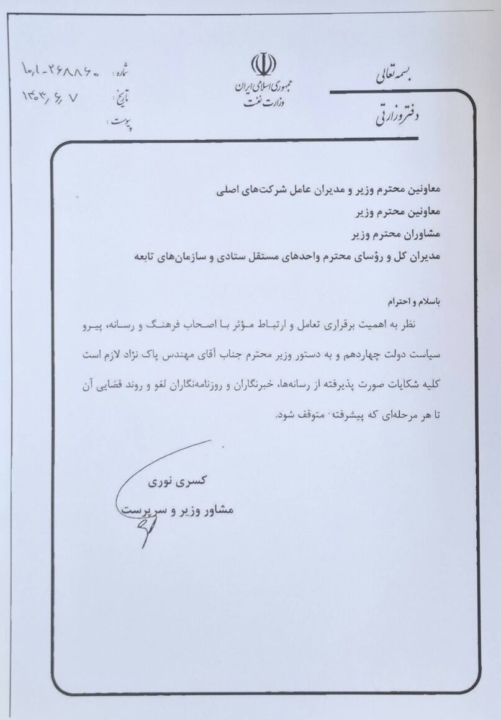 بسمه تعالی
جمهوری اسلامی ایران
وزارت نفت
دفتر وزارتی
شماره:
تاریخ: ۱۴۰۳/۶/۷
پیوست:
معاونین محترم وزیر و مدیران عامل شرکت‌های اصلی
معاونین محترم وزیر
مشاوران محترم وزیر
مدیران کل و رؤسای محترم واحدهای مستقل ستادی و سازمان‌های تابعه
باسلام و احترام
نظر به اهمیت برقراری تعامل و ارتباط مؤثر با اصحاب فرهنگ و رسانه، پیرو
سیاست دولت چهاردهم و به دستور وزیر محترم جناب آقای مهندس پاک نژاد لازم است
کلیه شکایات صورت پذیرفته از رسانه‌ها، خبرنگاران و روزنامه‌نگاران لغو و روند قضایی آن
تا هر مرحله‌ای که پیشرفته متوقف شود.
کسری نوری
مشاور وزیر و سرپرست